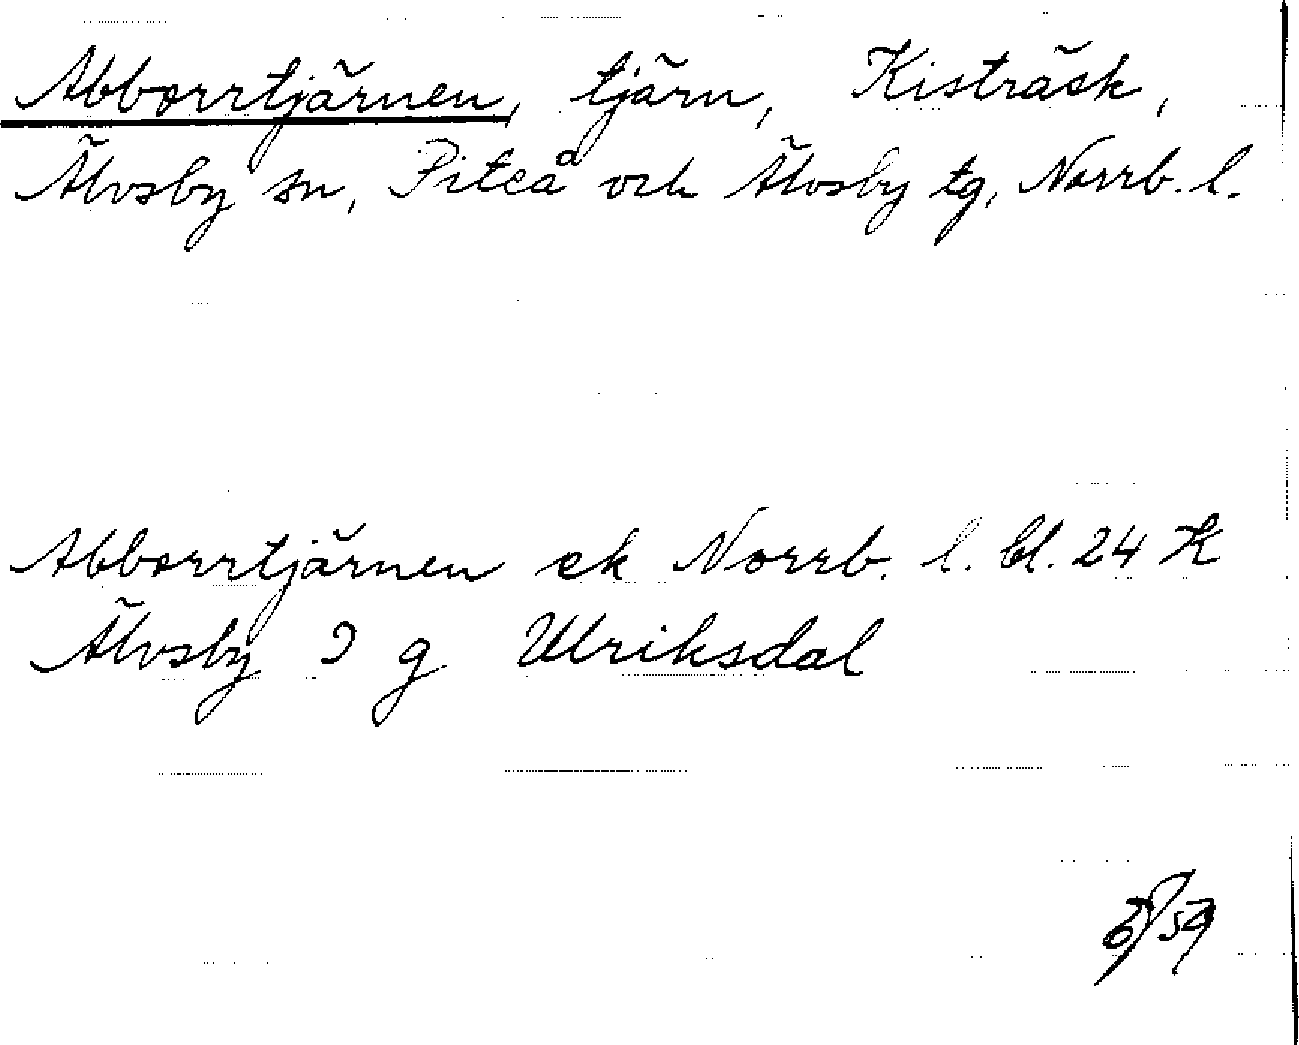 Abborrtjärnen, tjärn, Kisträsk,
Älvsby sn, Piteå och Älvsby tg, Norrb. l.
Abborrtjärnen ek Norrb. l. bl. 24 K
Älvsby g Ulriksdal